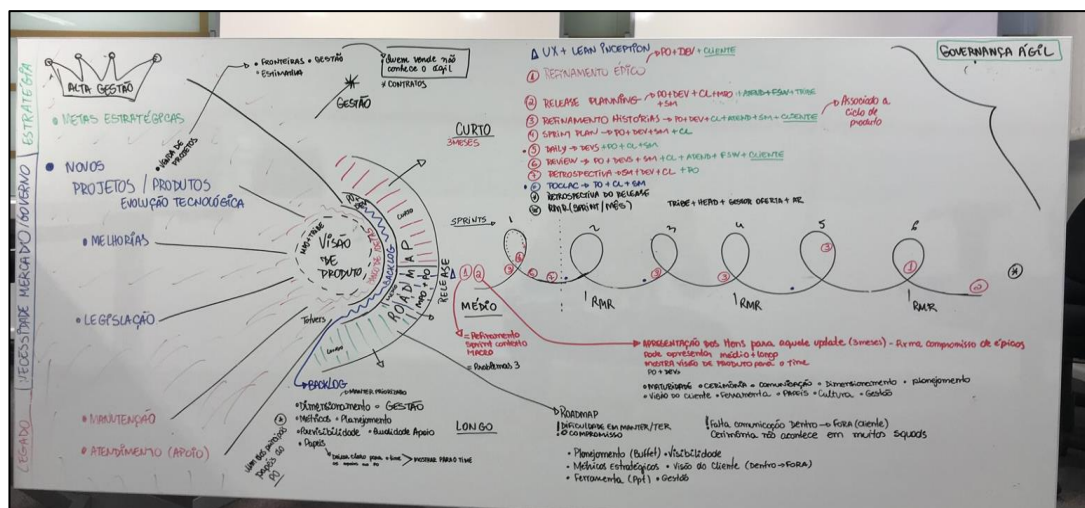 GOVERNANÇA ÁGIL
ESTRATÉGIA
NECESSIDADE MERCADO/GOVERNO
LEGADO
ALTA GESTÃO
• METAS ESTRATÉGICAS
• NOVOS
PROJETOS / PRODUTOS
EVOLUÇÃO TECNOLÓGICA
• MELHORIAS
• LEGISLAÇÃO
• MANUTENÇÃO
• ATENDIMENTO (APOIO)
• VENDA DE PROJETOS
• FRONTEIRAS • GESTÃO
• ESTIMATIVA
Quem vende não
conhece o ágil
* CONTRATOS
GESTÃO
VISÃO
DE
PRODUTO
BACKLOG
ROADMAP
MPO + PO
RELEASE
CURTO
3 MESES
MÉDIO
LONGO
Δ UX + LEAN INCEPTION → PO + DEV + CLIENTE
① REFINAMENTO ÉPICO
② RELEASE PLANNING → PO + DEV + CL + MPO + ATEND + FSW + TRIBE
+ SM
③ REFINAMENTO HISTÓRIAS → PO + DEV + CL + ATEND + SM + CLIENTE
→ Associado a
ciclo de
produto
④ SPRINT PLAN → PO + DEV + SM + CL
⑤ DAILY → DEVS + PO + CL + SM
⑥ REVIEW → PO + DEVS + SM + CL + ATEND + FSW + CLIENTE
⑦ RETROSPECTIVA → SM + DEV + CL + PO
POCLAC → PO + CL + SM
RETROSPECTIVA DO RELEASE
RMR (SPRINT/MÊS) TRIBE + HEAD + GESTOR OFERTA + AR
SPRINTS 1 2 3 4 5 6
Δ ① ②
RMR RMR RMR
= Refinamento
contexto
MACRO
= Problemas 3
APRESENTAÇÃO DOS itens para aquele update (3 meses) - Firma compromisso de épicos
Pode apresentar médio + longo
MOSTRA VISÃO DE PRODUTO para o Time
PO + DEVS
• MATURIDADE • CERIMÔNIA • Comunicação • Dimensionamento • planejamento
• VISÃO do CLIENTE • Ferramenta • PAPÉIS • Cultura • Gestão
→ BACKLOG
→ MANTER PRIORIZADO
• Dimensionamento • GESTÃO
• Métricas • Planejamento
• Previsibilidade • Qualidade Apoio
• Papéis
→ MOSTRAR PARA O TIME
papéis do
PO
ROADMAP
! DIFICULDADE EM MANTER/TER
! O COMPROMISSO
! Falta comunicação Dentro → FORA (cliente)
Cerimônia não acontece em muitos squads
• Planejamento (Buffer) • Visibilidade
• Métricas Estratégicas • Visão do Cliente (Dentro → FORA)
• Ferramenta (Ppt) • Gestão